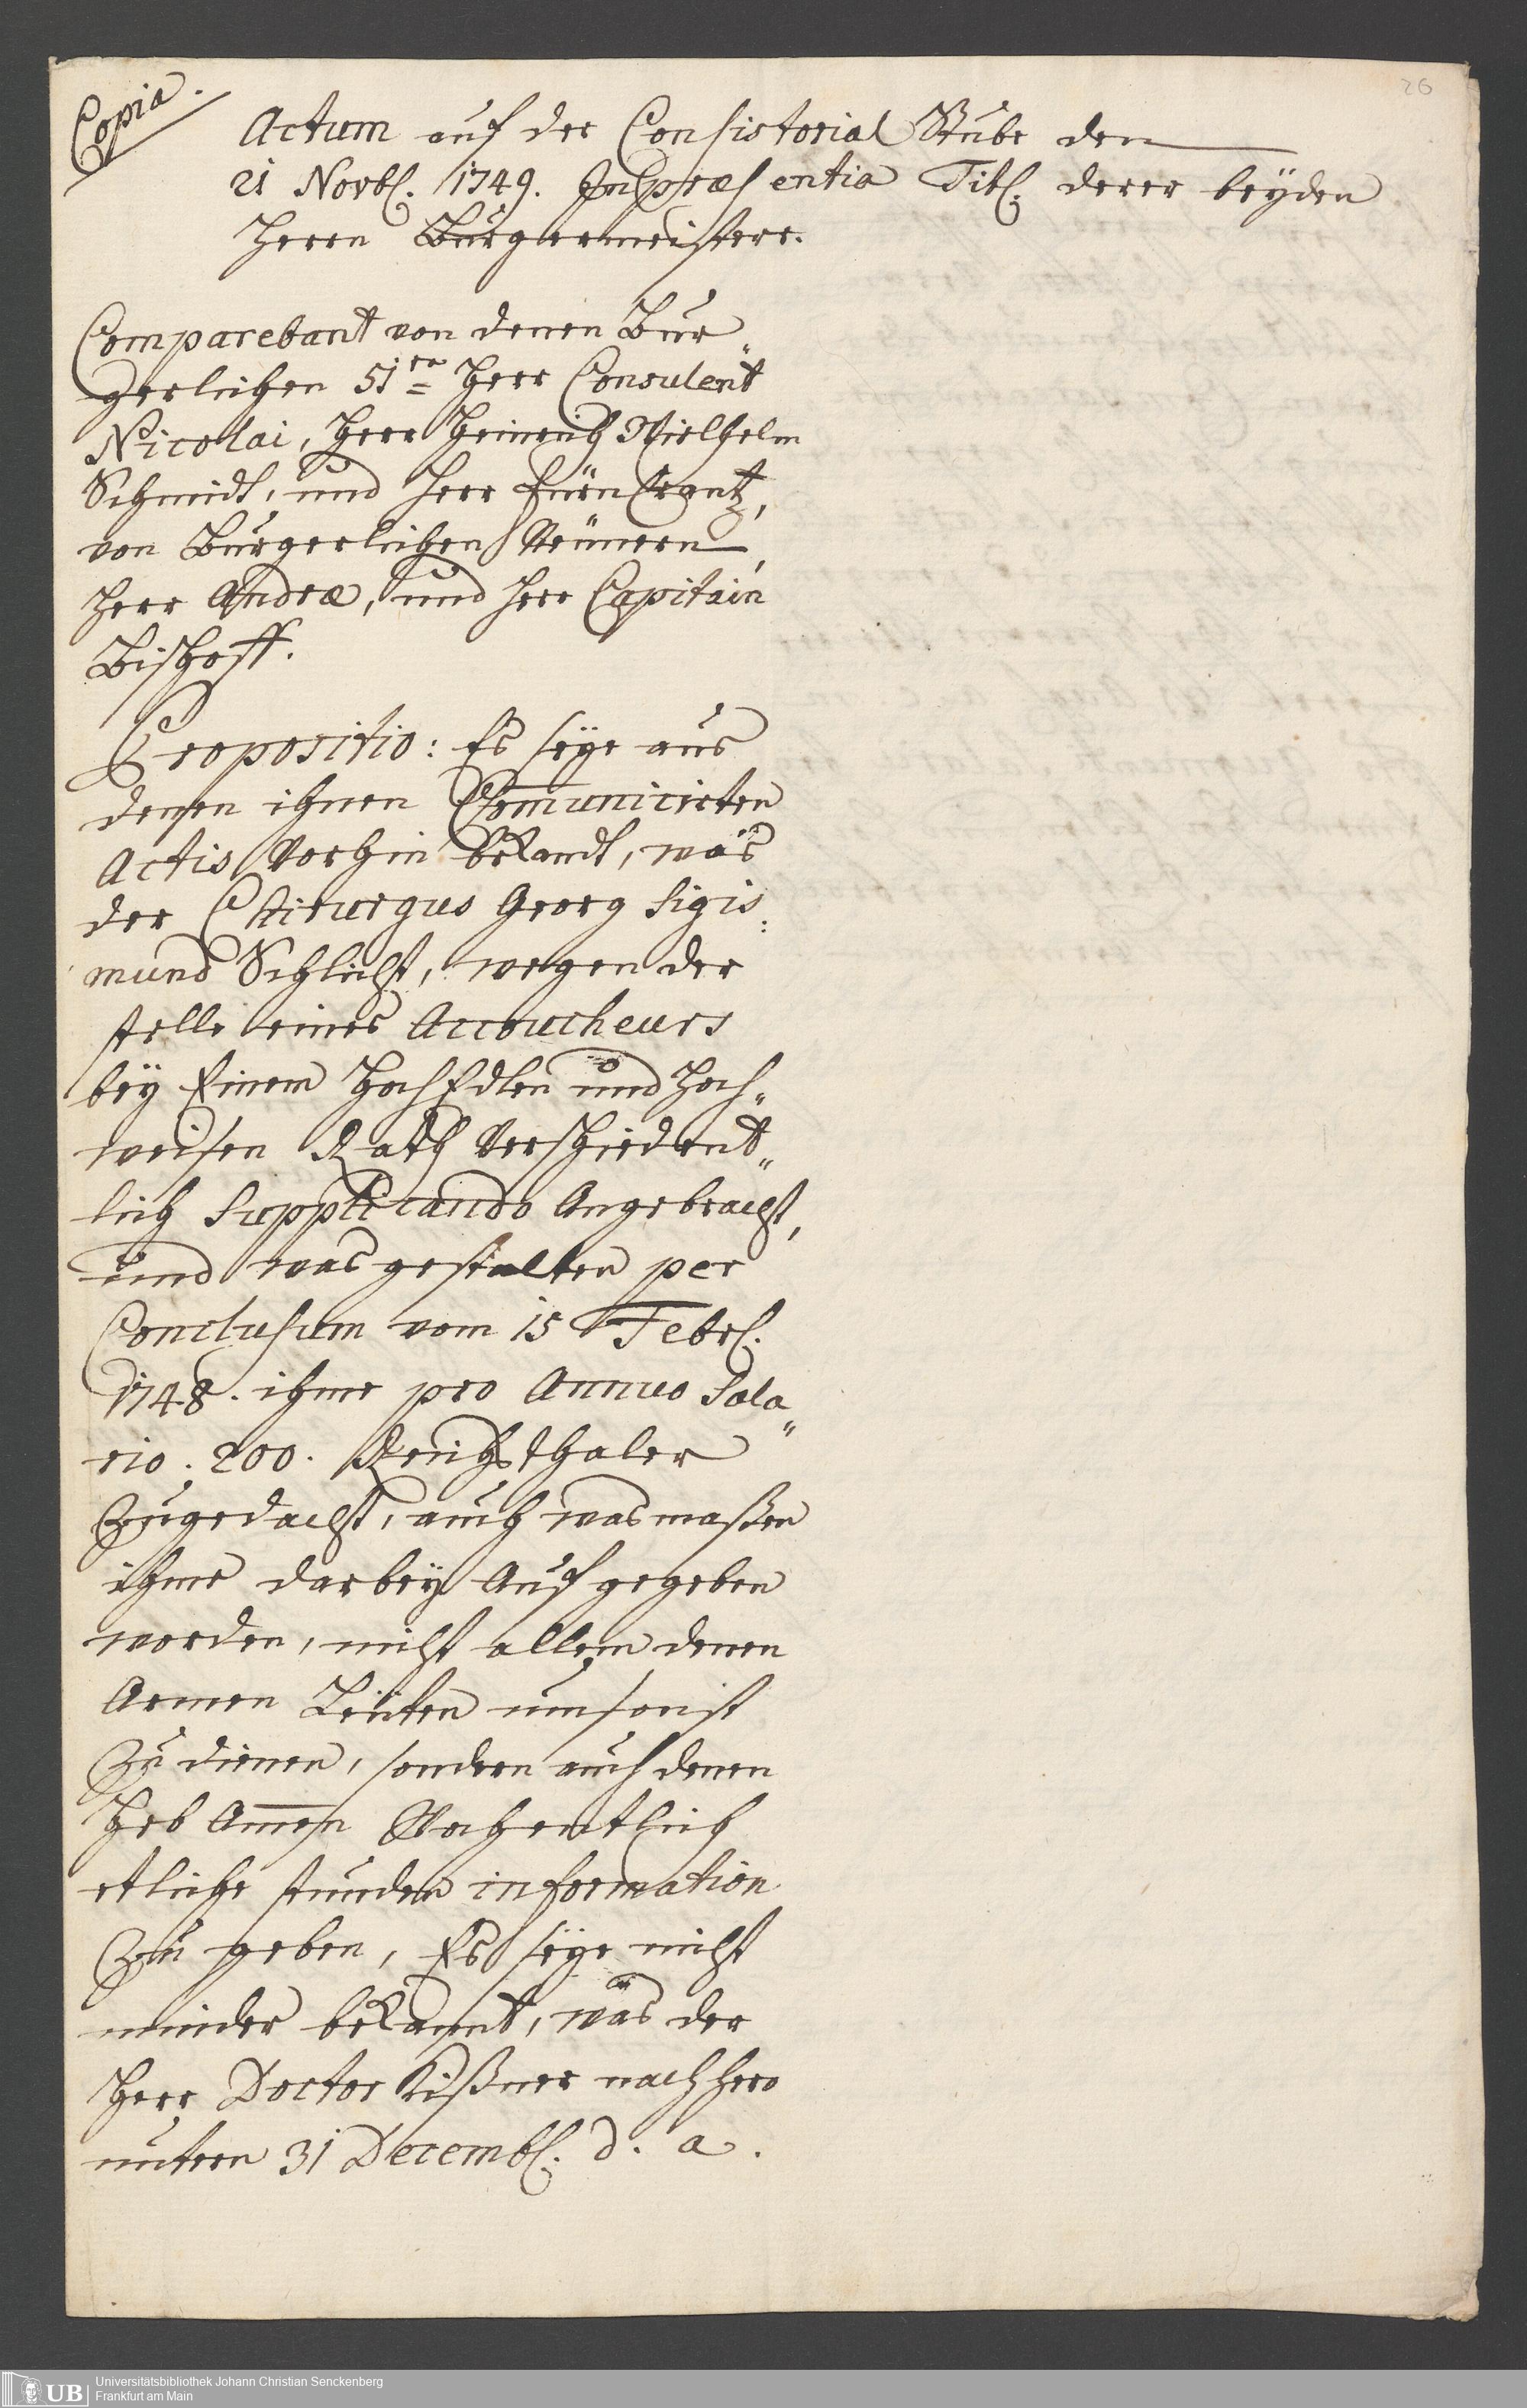 26
Copia.
Actum auf der Consistorial Stube den
21 Novbl. 1749. In præsentia Titl. derer beyden
Herrn Burgermeistere.
Comparebant von denen Bur„
gerlichen 51rn Herr Consulent
Nicolai, Herr Heinrich Wielhelm
Schmidt, und Herr Fürn Crantz,
von Burgerlichen Neünern,
Herr Andræ, und Herr Capitain
Bischoff.
Propositio: Es seye aus
denen ihnen Com̅unicirten
Actis Vorhin bekandt, was
der Chirurgus Georg Sigis:
mund Schlicht, wegen der
stelle eines Accoucheurs
bey Einem HochEdlen und Hoch„
weisen Rath Verschiedent„
lich Supplicando Angebracht,
und was gestalten per
Conclusum vom 15 Febrl.
1748. ihme pro Annuo Sala„
rio. 200. Reichsthaler
Zugedacht, auch was maßen
ihme darbey Auf gegeben
worden, nicht allein denen
Armen Leüten umsonst
Zu dienen, sondern auch denen
Heb Am̅en Wochentlich
etliche stunden information
Zu geben, Es seye nicht
minder bekannt, was der
Herr Doctor Kißner nach hero
untern 31 Decembl. d. a.
UB
Universitätsbibliothek Johann Christian Senckenberg
Frankfurt am Main